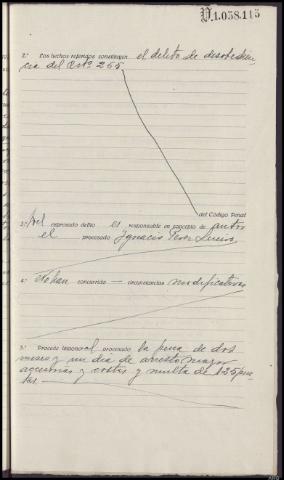 1.058.115
2.ª Los hechos referidos constituyen el delito de desobedien
cia del Artº 265
del Código Penal
3.ª Del expresado delito es responsable en concepto de autor
el procesado Ignacio
4.ª No han concurrido circunstancias modificativas
5.ª Procede imponer al procesado la pena de dos
meses y un dia de arresto mayor
accesorias y costas y multa de 125 pese
tas.